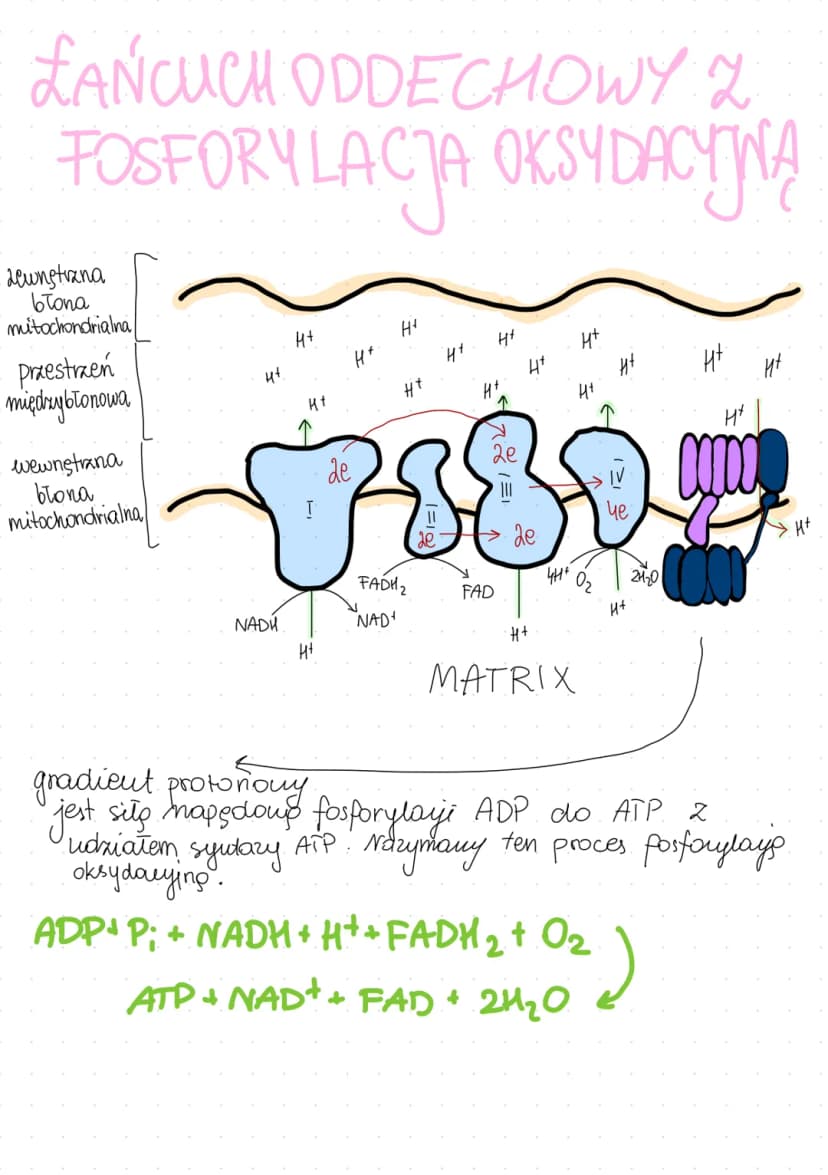 ŁAŃCUCH ODDECHOWY Z
FOSFORYLACJA OKSYDACYJNĄ
zewnętrzna
błona
mitochondrialna
przestrzeń
międzybłonowa
wewnętrzna
błona
mitochondrialna
H+ H+ H+ H+
H+ H+ H+ H+ H+ H+
H+ H+ H+ H+ H+
H+
2e 2e
I II III IV
2e 2e 4e
H+
FADH2 FAD 4H+ O2 2H2O
NADH NAD+ H+
H+ H+
MATRIX
gradient protonowy
jest siłą napędową fosforylacji ADP do ATP z
udziałem syntazy ATP. Nazymamy ten proces fosforylacją
oksydacyjną.
ADP+ Pi + NADH + H+ + FADH2 + O2
ATP + NAD+ + FAD + 2H2O